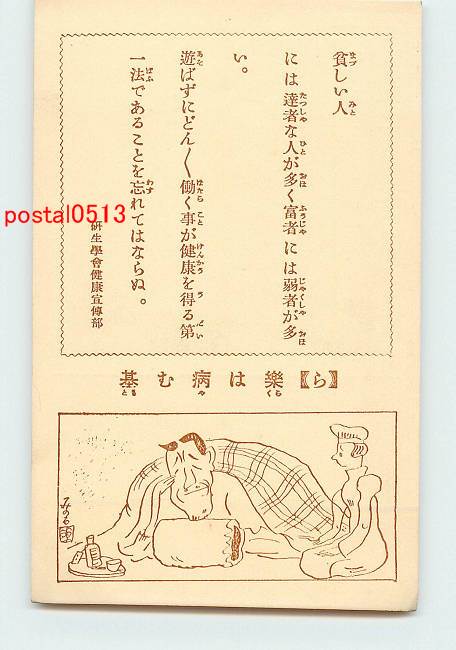 貧しい人
には達者な人が多く富者には弱者が多
い。
遊ばずにどん〳〵働く事が健康を得る第
一法であることを忘れてはならぬ。
研生學會健康宣傳部
postal0513
【ら】樂は病む基
みのる